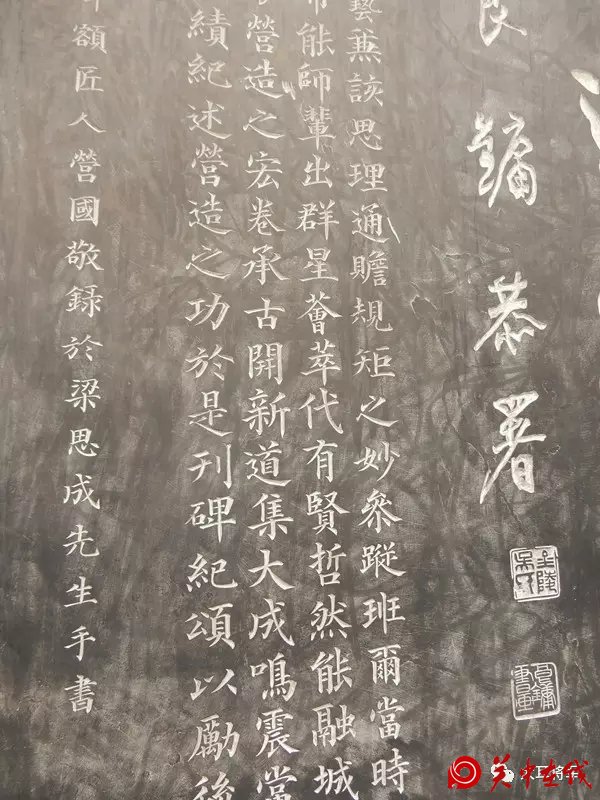 良鏞恭署
藝兼該思理通贍規矩之妙參蹤班爾當時
能師輩出群星薈萃代有賢哲然能融城
營造之宏卷承古開新道集大成鳴震當
績紀述營造之功於是刊碑紀頌以勵後
額匠人營國敬錄於梁思成先生手書
关中在线